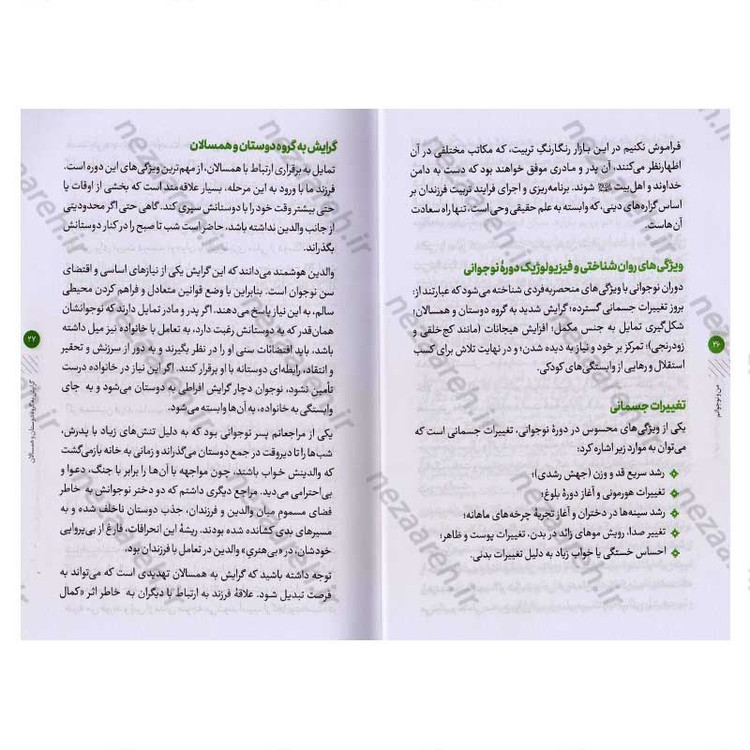 فراموش نکنیم در این بازار رنگارنگِ تربیت، که مکاتب مختلفی در آن
اظهارنظر می‌کنند، آن پدر و مادری موفق خواهند بود که دست به دامن
خداوند و اهل‌بیت شوند. برنامه‌ریزی و اجرای فرایند تربیت فرزندان بر
اساس گزاره‌های دینی، که وابسته به علم حقیقی وحی است، تنها راه سعادت
آن‌هاست.
ویژگی‌های روان‌شناختی و فیزیولوژیک دورهٔ نوجوانی
دوران نوجوانی با ویژگی‌های منحصربه‌فردی شناخته می‌شود که عبارتند از:
بروز تغییرات جسمانی گسترده؛ گرایش شدید به گروه دوستان و همسالان؛
شکل‌گیری تمایل به جنس مکمل؛ افزایش هیجانات (مانند کج‌خلقی و
زودرنجی)؛ تمرکز بر خود و نیاز به دیده شدن؛ و در نهایت تلاش برای کسب
استقلال و رهایی از وابستگی‌های کودکی.
تغییرات جسمانی
یکی از ویژگی‌های محسوس در دورهٔ نوجوانی، تغییرات جسمانی است که
می‌توان به موارد زیر اشاره کرد:
رشد سریع قد و وزن (جهش رشدی)؛
تغییرات هورمونی و آغاز دورهٔ بلوغ؛
رشد سینه‌ها در دختران و آغاز تجربهٔ چرخه‌های ماهانه؛
تغییر صدا، رویش موهای زائد در بدن، تغییرات پوست و ظاهر؛
احساس خستگی یا خواب زیاد به دلیل تغییرات بدنی.
۲۶
من و نوجوانم
گرایش به گروه دوستان و همسالان
تمایل به برقراری ارتباط با همسالان، از مهم‌ترین ویژگی‌های این دوره است.
فرزند ما با ورود به این مرحله، بسیار علاقه‌مند است که بخشی از اوقات یا
حتی بیشتر وقت خود را با دوستانش سپری کند. گاهی حتی اگر محدودیتی
از جانب والدین نداشته باشد، حاضر است شب تا صبح را در کنار دوستانش
بگذراند.
والدین هوشمند می‌دانند که این گرایش یکی از نیازهای اساسی و اقتضای
سن نوجوان است. بنابراین با وضع قوانین متعادل و فراهم کردن محیطی
سالم، به این نیاز پاسخ می‌دهند. اگر پدر و مادر تمایل دارند که نوجوانشان
همان‌قدر که به دوستانش رغبت دارد، به تعامل با خانواده نیز میل داشته
باشد، باید اقتضائات سنی او را در نظر بگیرند و به دور از سرزنش و تحقیر
و انتقاد، رابطه‌ای دوستانه با او برقرار کنند. اگر این نیاز در خانواده درست
تأمین نشود، نوجوان دچار گرایش افراطی به دوستان می‌شود و به جای
وابستگی به خانواده، به آن‌ها وابسته می‌شود.
یکی از مراجعانم پسر نوجوانی بود که به دلیل تنش‌های زیاد با پدرش،
شب‌ها را تا دیروقت در جمع دوستان می‌گذراند و زمانی به خانه بازمی‌گشت
که والدینش خواب باشند، چون مواجهه با آن‌ها را برابر با جنگ، دعوا و
بی‌احترامی می‌دید. مراجع دیگری داشتم که دو دختر نوجوانش به خاطر
فضای مسموم میان والدین و فرزندان، جذب دوستان ناخلف شده و به
مسیرهای بدی کشانده شده بودند. ریشهٔ این انحرافات، فارغ از بی‌پروایی
خودشان، در «بی‌هنریِ» والدین در تعامل با فرزندان بود.
توجه داشته باشید که گرایش به همسالان تهدیدی است که می‌تواند به
فرصت تبدیل شود. علاقهٔ فرزند به ارتباط با دیگران به خاطر اثر «کمال
۲۷
گرایش به گروه دوستان و همسالان
nezaareh.ir